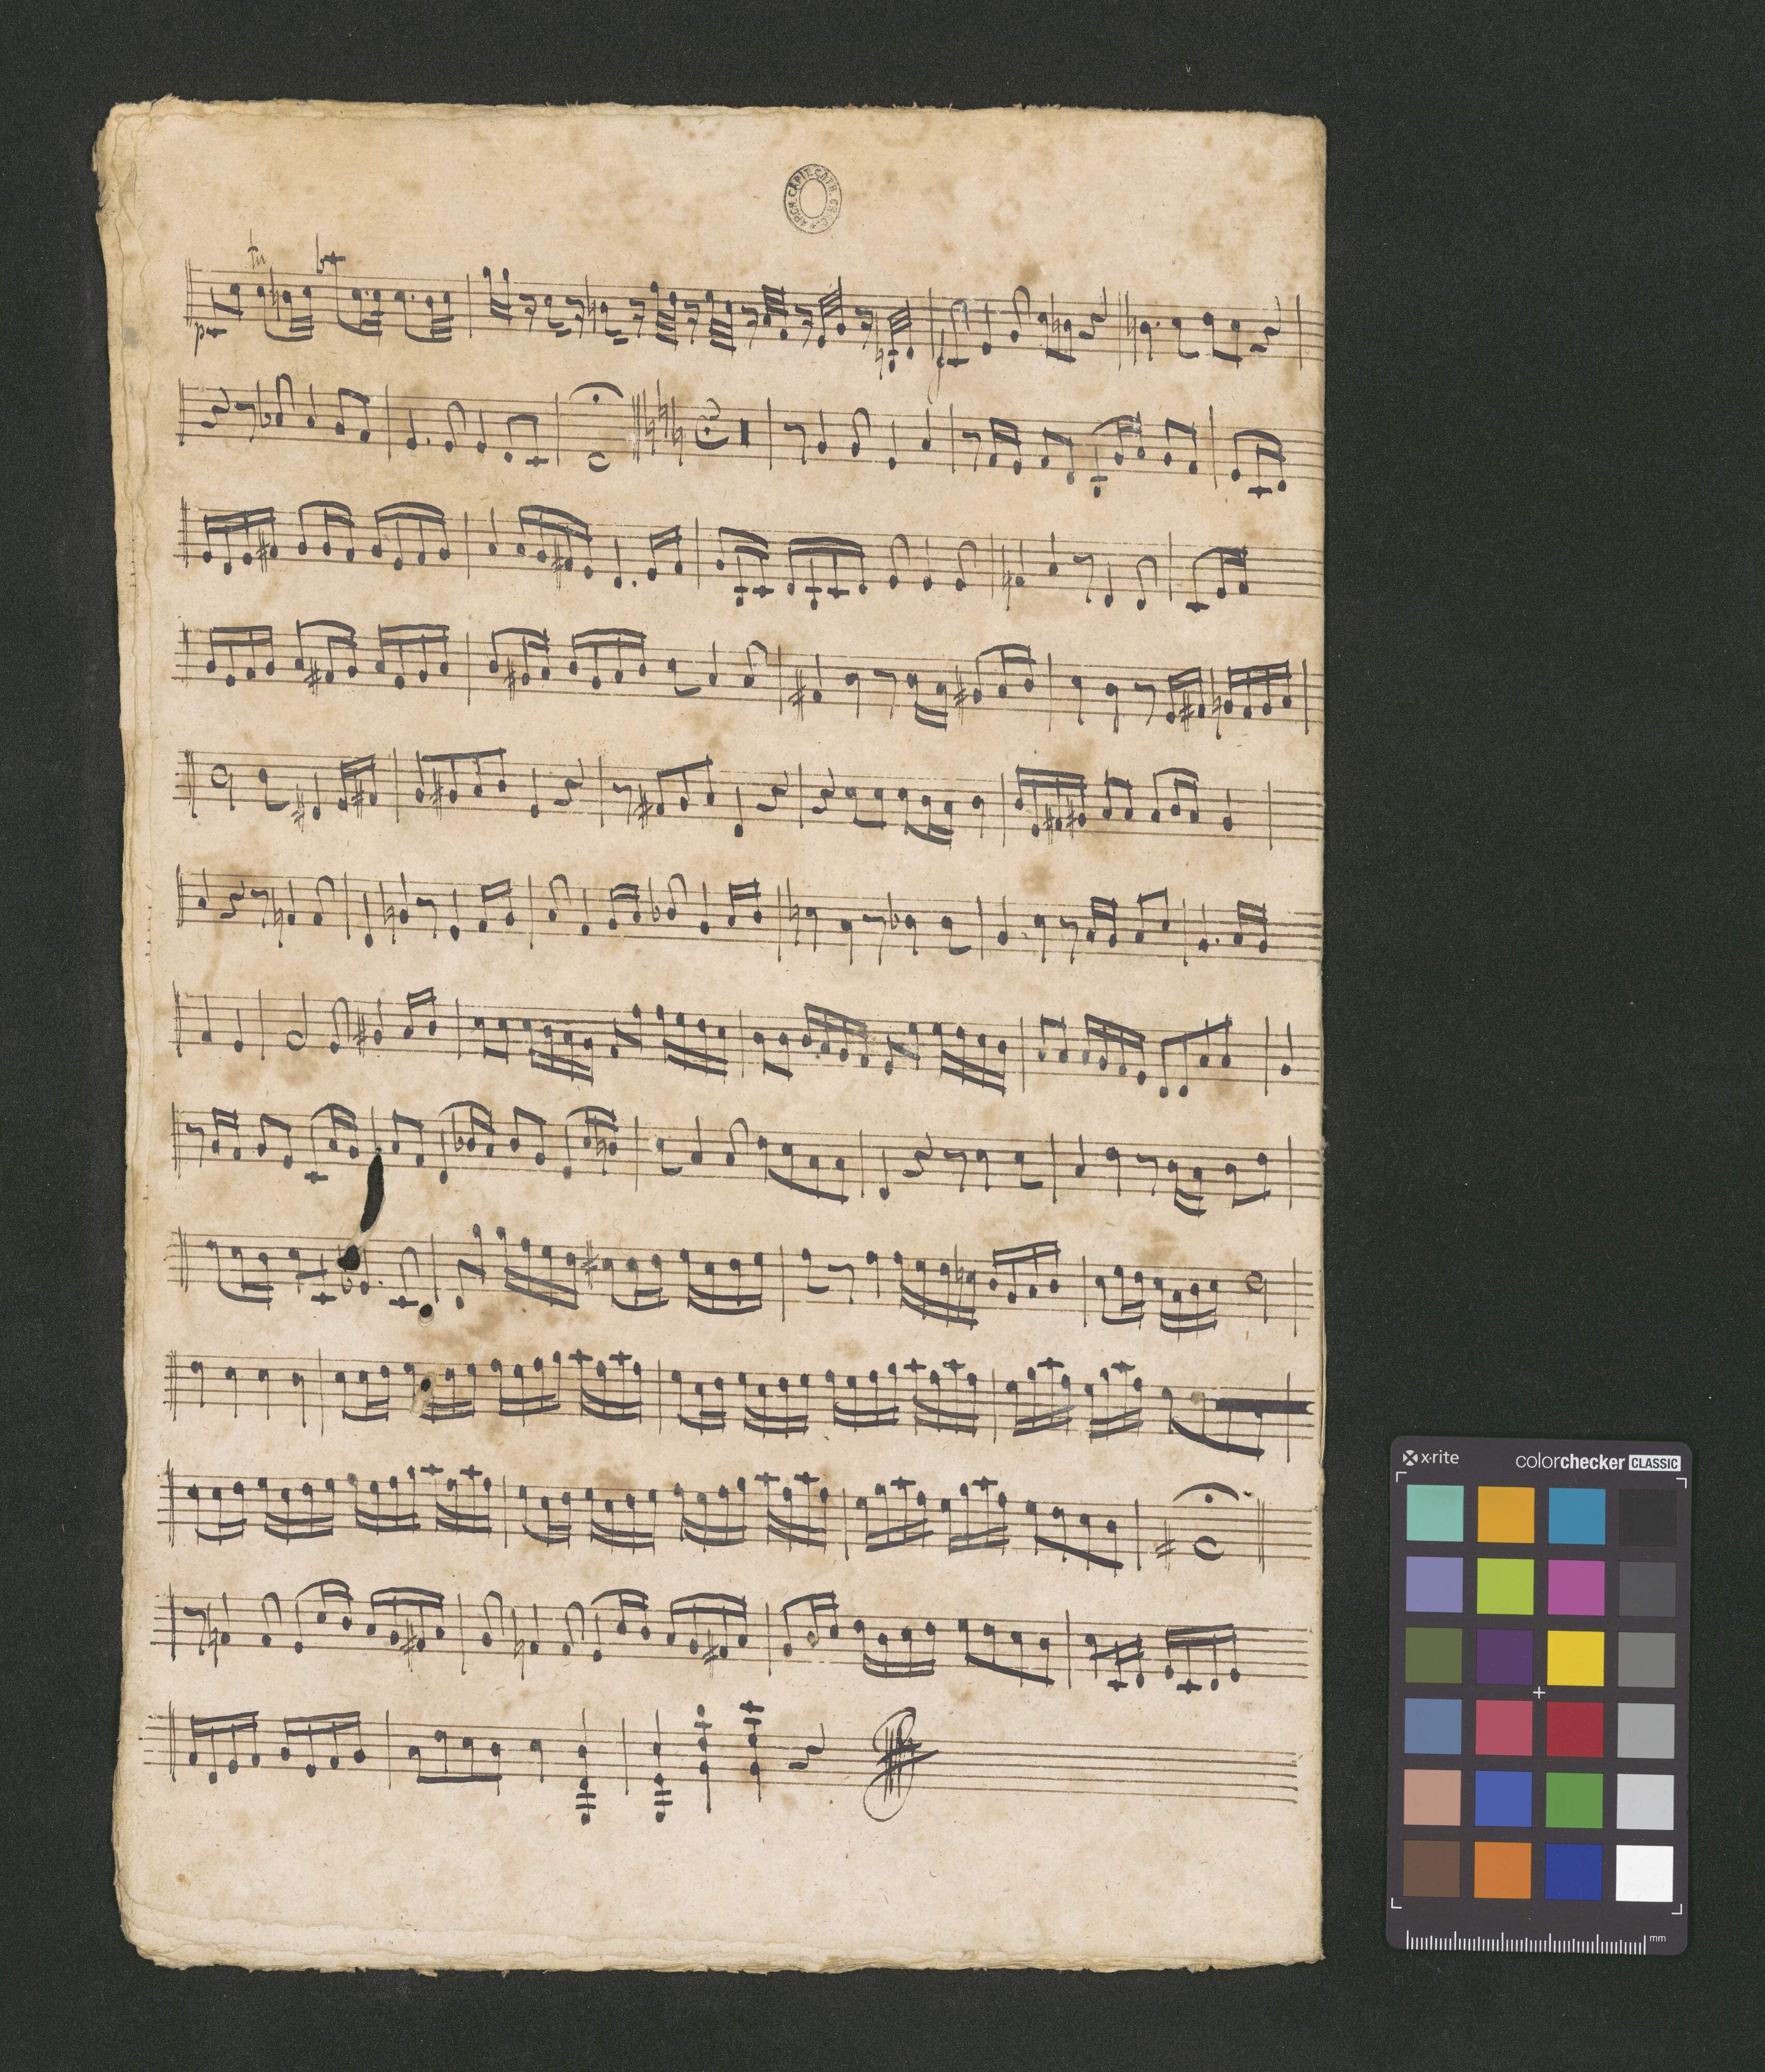 ARCH. CAPIT. CATH.
tr
p
f
x-rite
colorchecker CLASSIC
mm